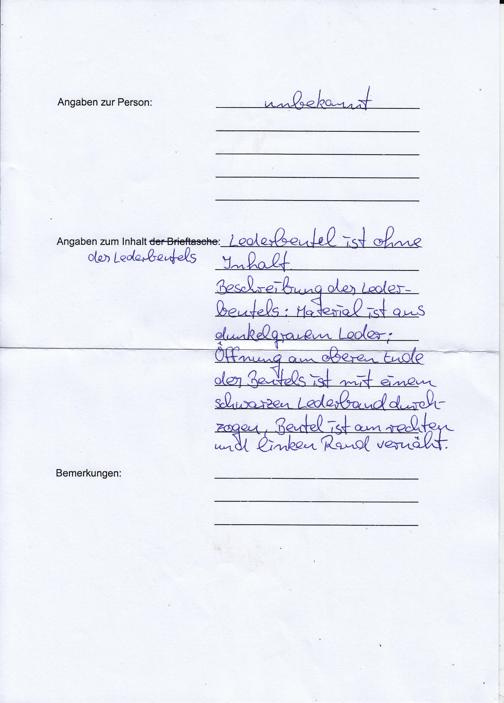 Angaben zur Person: unbekannt
Angaben zum Inhalt der Brieftasche: Lederbeutel ist ohne
des Lederbeutels Inhalt
Beschreibung des Leder-
beutels: Material ist aus
dunkelgrauem Leder;
Öffnung am oberen Ende
des Beutels ist mit einem
schwarzen Lederband durch-
zogen, Beutel ist am rechten
und linken Rand vernäht.
Bemerkungen: